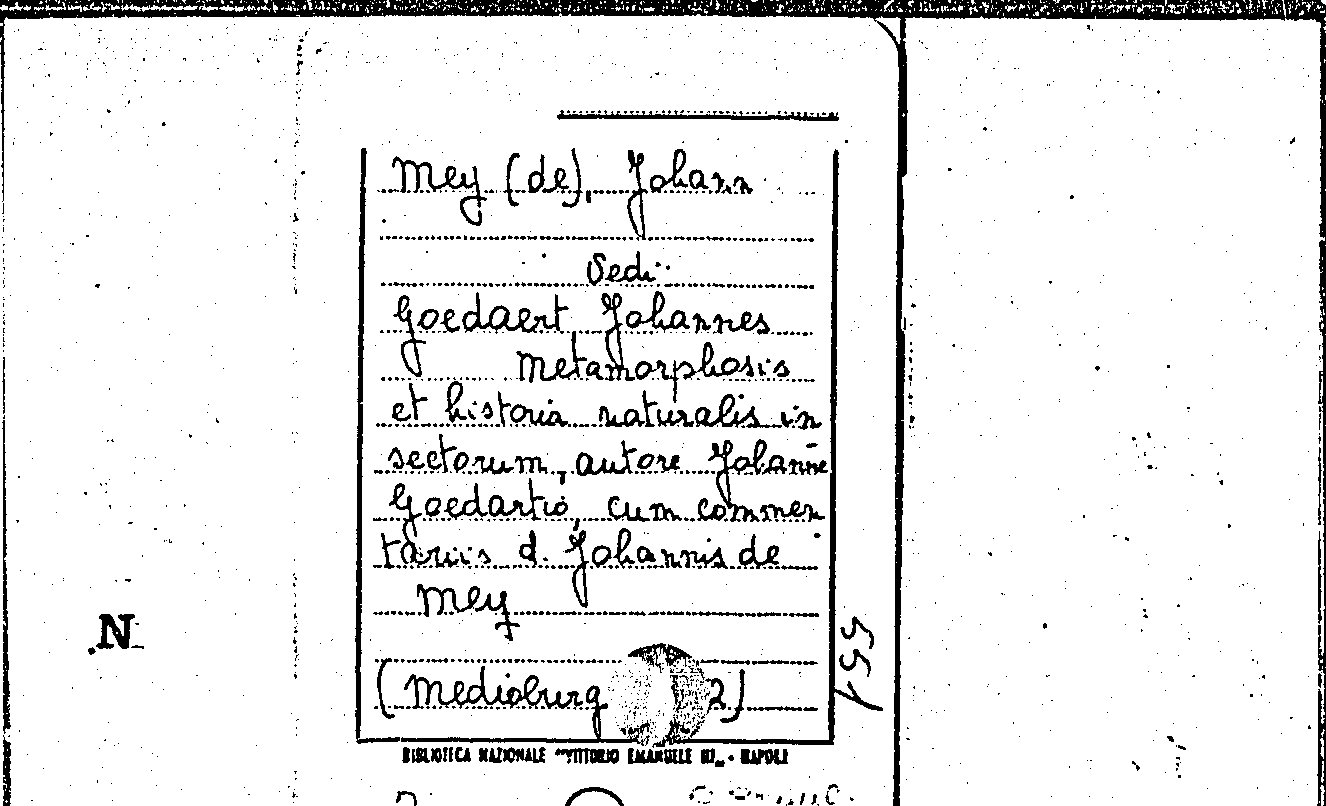 Mey (de), Johann
Vedi:
Goedaert Johannes
Metamorphosis
et historia naturalis in
sectorum, autore Johanne
Goedartio, cum commen
tariis d. Johannis de
Mey
(Medioburg 2)
BIBLIOTECA NAZIONALE "VITTORIO EMANUELE III" - NAPOLI
N